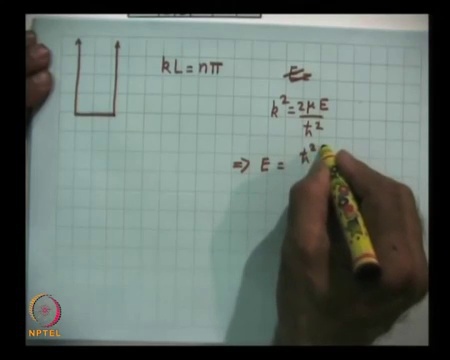 kL = nπ
k² = 2μE / ħ²
⇒ E = ħ²
NPTEL